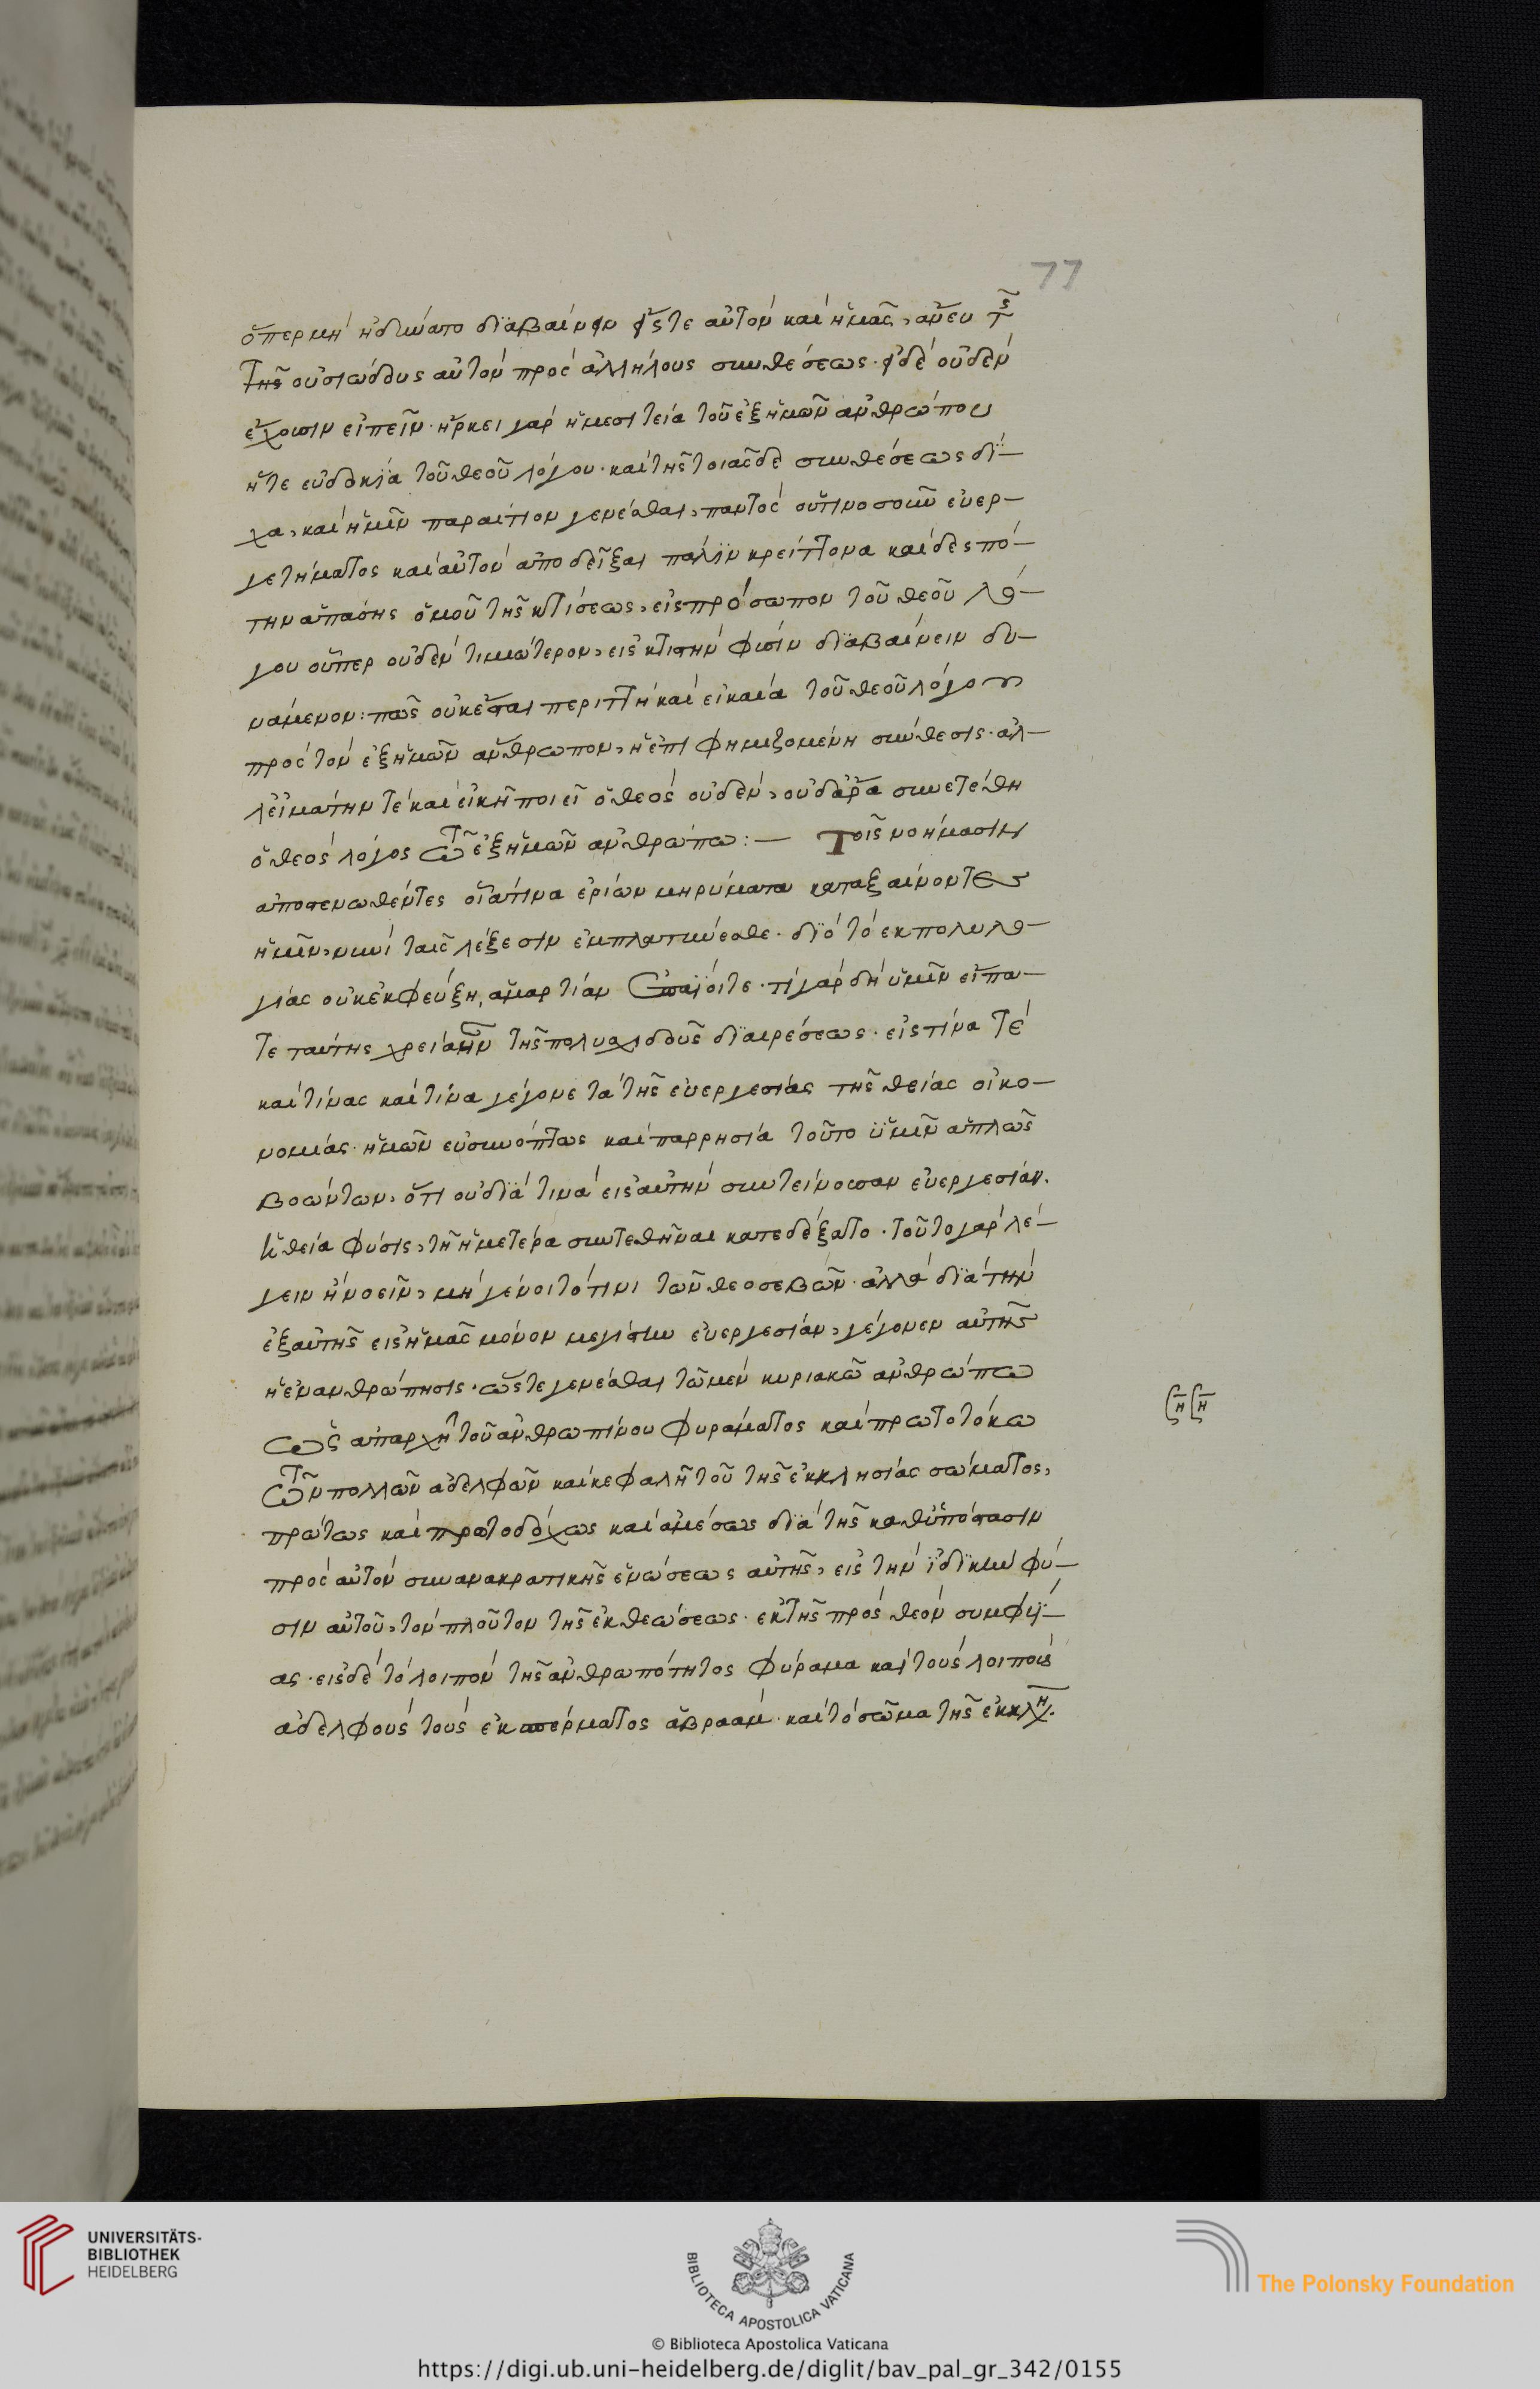 77
ὅπερ μὴ ἠδύνατο διαβαίνειν εἴς τε αὐτὸν καὶ ἡμᾶς, ἄνευ τῆς
τῆς οὐσιώδους αὐτῶν πρὸς ἀλλήλους συνθέσεως· εἰ δὲ οὐδὲν
ἔχουσιν εἰπεῖν· ἤρκει γὰρ ἡ μεσιτεία τοῦ ἐξ ἡμῶν ἀνθρώπου
ἥ τε εὐδοκία τοῦ θεοῦ λόγου· καὶ τῆς τοιᾶσδε συνθέσεως δί-
χα, καὶ ἡμῖν παραίτιον γενέσθαι, παντὸς οὑτινοσοῦν εὐερ-
γετήματος καὶ αὐτὸν ἀποδεῖξαι πάλιν κρείττονα καὶ δεσπό-
την ἁπάσης ὁμοῦ τῆς κτίσεως, εἰς πρόσωπον τοῦ θεοῦ λό-
γου οὗπερ οὐδὲν τιμιώτερον, εἰς κτιστὴν φύσιν διαβαίνειν δυ-
νάμενον: πῶς οὐκ ἔσται περιττὴ καὶ εἰκαία τοῦ θεοῦ λόγου
πρὸς τὸν ἐξ ἡμῶν ἄνθρωπον, ἡ ἐπιφημιζομένη σύνθεσις· ἀλ-
λ' εἰ μάτην τὲ καὶ εἰκῆ ποιεῖ ὁ θεὸς οὐδὲν, οὐδ' ἄρα συνετέθη
ὁ θεὸς λόγος τῶ ἐξ ἡμῶν ἀνθρώπω:— Τοῖς νοήμασιν
ἀποστενωθέντες οἷά τινα ἐρίων μηρύματα καταξαίνοντες
ἡμῖν, νυνὶ ταῖς λέξεσιν ἐμπλατύνεσθε· διὸ τὸ ἐκ πολυλο-
γίας οὐκ ἐκφεύξη, ἁμαρτίαν τί γὰρ δὴ ὑμῖν εἴπα-
τε ταύτης χρεία τῆς πολυσχιδοῦς διαιρέσεως· εἰς τίνα τὲ
καὶ τίνας καὶ τίνα γέγονε τὰ τῆς εὐεργεσίας τῆς θείας οἰκο-
νομίας· ἡμῶν εὐσυνόπτως καὶ παρρησία τοῦτο ὑμῖν ἁπλῶς
βοώντων, ὅτι οὐ διά τινα εἰς αὐτὴν συντείνουσαν εὐεργεσίαν.
ἡ θεία φύσις, τῆ ἡμετέρα συντεθῆναι κατεδέξατο· τοῦτο γὰρ λέ-
γειν ἢ νοεῖν, μὴ γένοιτό τινι τῶν θεοσεβῶν· ἀλλὰ διὰ τὴν
ἐξ αὐτῆς εἰς ἡμᾶς μόνον μεγίστην εὐεργεσίαν, γέγονεν αὐτῆς
ἡ ἐνανθρώπησις· ὥς τε γενέσθαι τῶ μὲν κυριακῶ ἀνθρώπω
ὡς ἀπαρχῆ τοῦ ἀνθρωπίνου φυράματος καὶ πρωτοτόκω
τῶν πολλῶν ἀδελφῶν καὶ κεφαλῆ τοῦ τῆς ἐκκλησίας σώματος,
πρώτως καὶ πρωτοδόχως καὶ ἀμέσως διὰ τῆς καθ' ὑπόστασιν
πρὸς αὐτὸν συνανακρατικῆς ἑνώσεως αὐτῆς, εἰς τὴν ἰδικὴν φύ-
σιν αὐτοῦ, τὸν πλοῦτον τῆς ἐκθεώσεως· ἐκ τῆς πρὸς θεὸν συμφυΐ-
ας· εἰς δὲ τὸ λοιπὸν τῆς ἀνθρωπότητος φύραμα καὶ τοὺς λοιποὺς
ἀδελφοὺς τοὺς ἐκ σπέρματος ἀβραάμ· καὶ τὸ σῶμα τῆς ἐκκλη
UNIVERSITÄTS-
BIBLIOTHEK
HEIDELBERG
BIBLIOTECA APOSTOLICA VATICANA
The Polonsky Foundation
© Biblioteca Apostolica Vaticana
https://digi.ub.uni-heidelberg.de/diglit/bav_pal_gr_342/0155